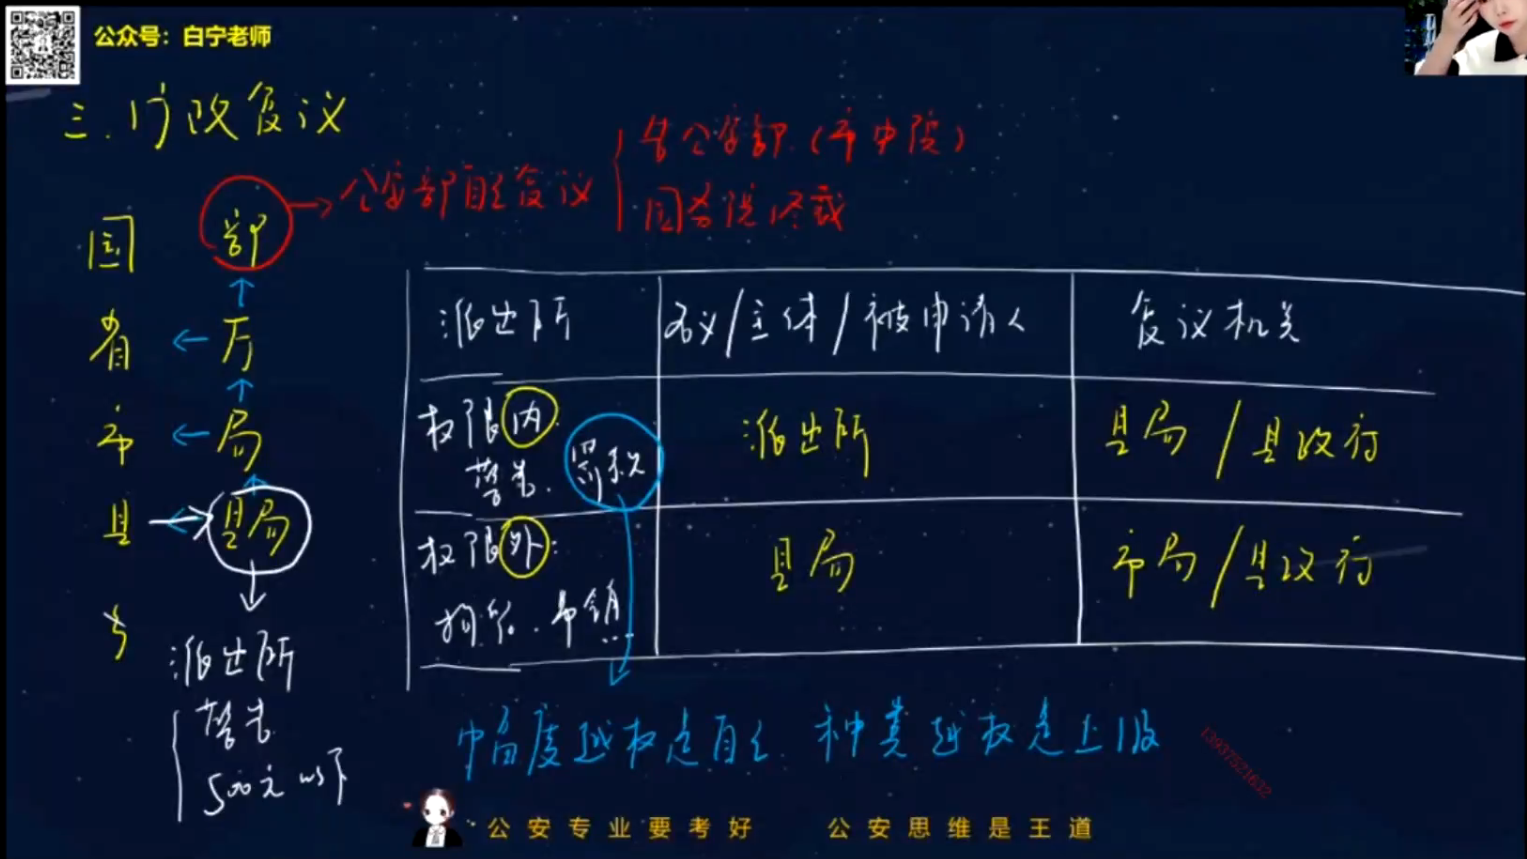 公众号：白宁老师
三.行政复议
公安部自己复议
告公安部（市中院）
国务院终裁
国 部
省 ← 厅
市 ← 局
县 县局
乡
派出所
警告
500元以下
派出所 名义/主体/被申请人 复议机关
权限内: 警告. 罚款 派出所 县局/县政府
权限外: 拘留.吊销… 县局 市局/县政府
幅度越权是自己 种类越权是上级
13937521632
公安专业要考好 公安思维是王道